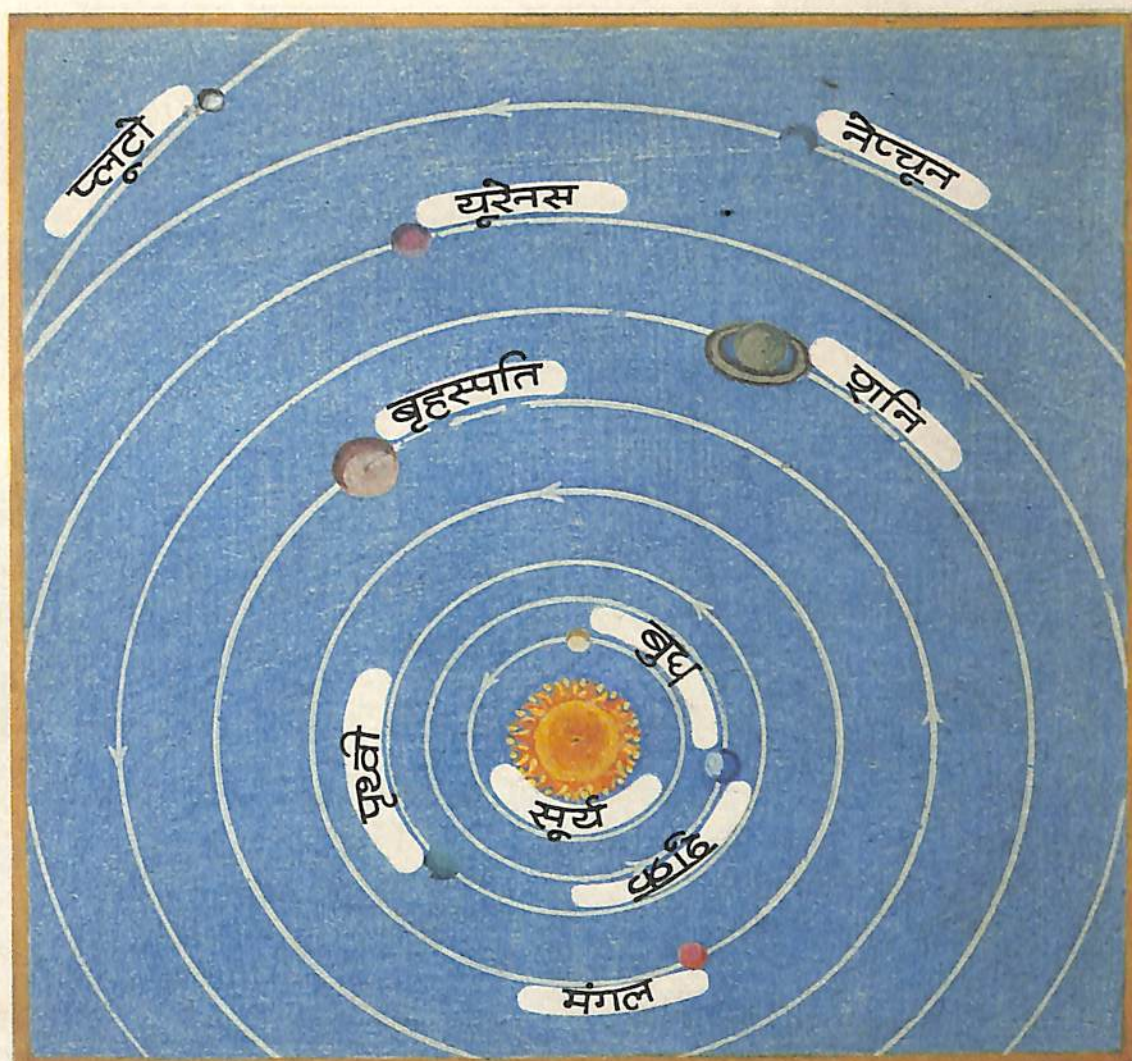 प्लूटो
नेप्चून
यूरेनस
शनि
बृहस्पति
बुध
पृथ्वी
सूर्य
मंगल